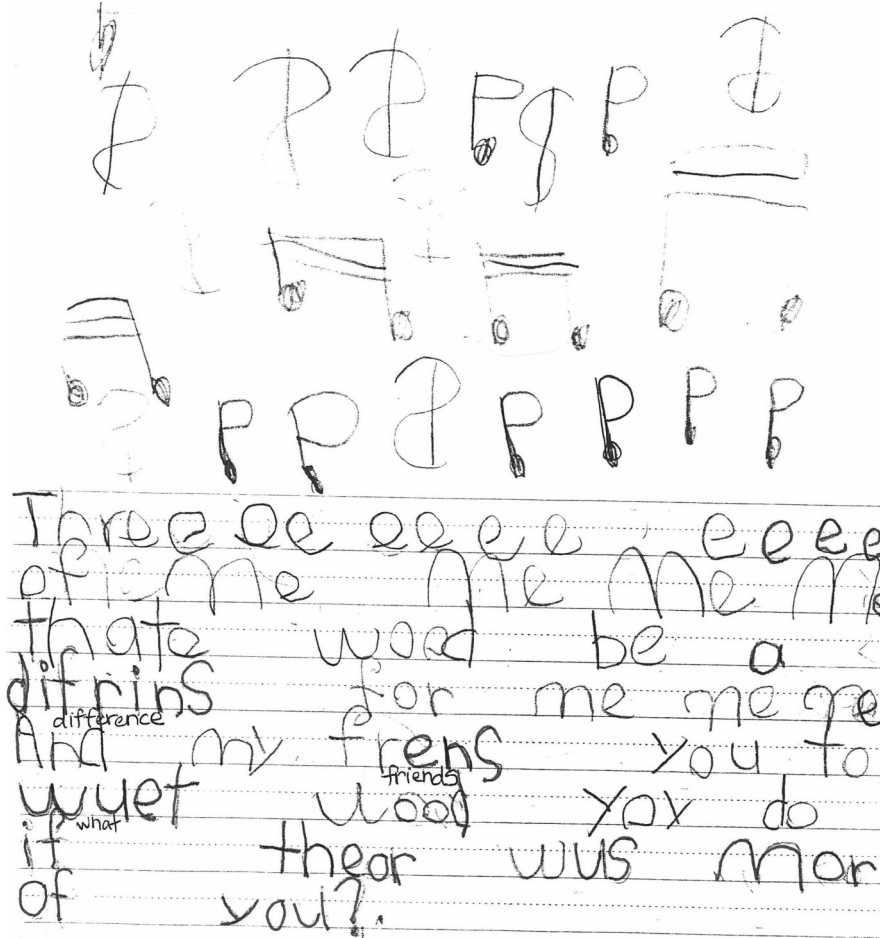 Three ee eeee eeee
of me Me Me Me
thate wood be a
difrins for me me me
difference
And my frens you to
friends
wuet wood yoy do
what
if theor wus mor
of you?